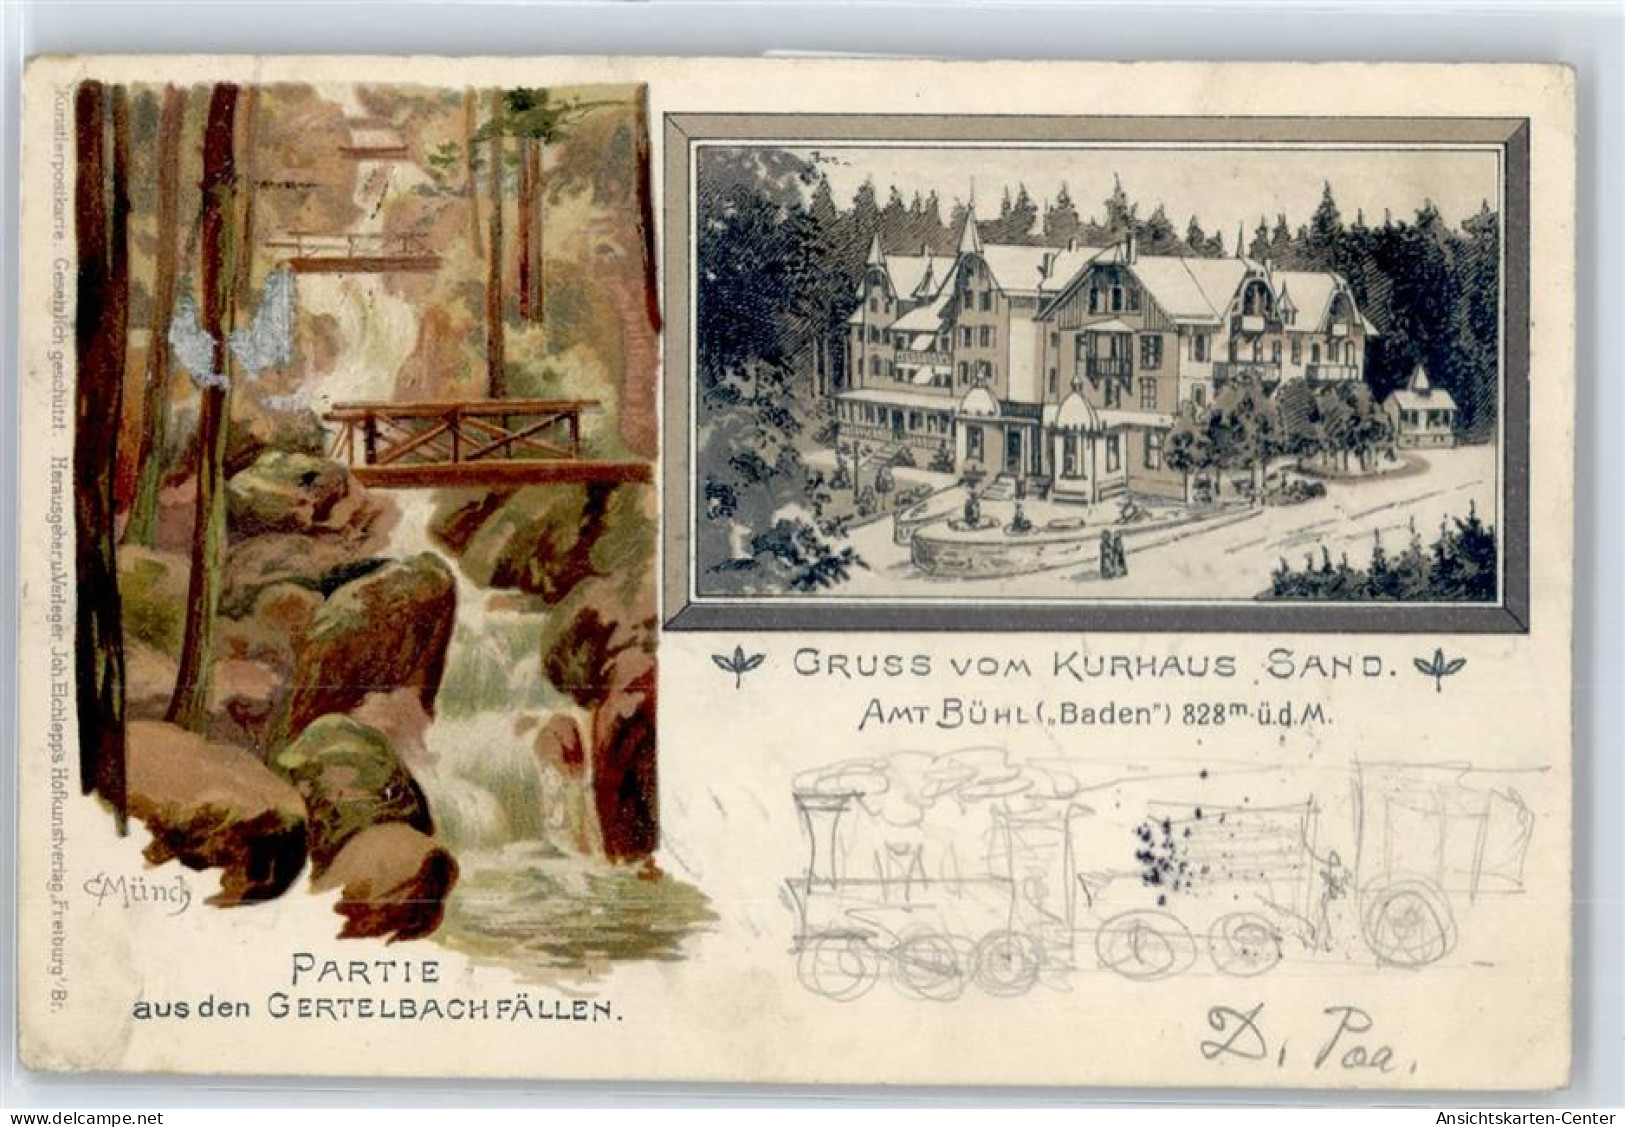 Künstlerpostkarte. Gesetzlich geschützt. Herausgeber u. Verleger Joh. Elchlepp's Hofkunstverlag, Freiburg i/Br.
C Münch
PARTIE
aus den GERTELBACHFÄLLEN.
GRUSS VOM KURHAUS SAND.
AMT BÜHL („Baden") 828m. ü.d.M.
D. Poa.
Ansichtskarten-Center